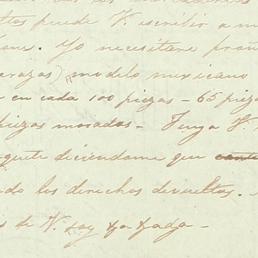 ttos puede V. escribir a m
Yo necesitare pron
modelo mexicano
en cada 100 piezas - 65 pieza
piezas moradas - Tenga V.
quete diciendome que
ndo los derechos devueltos.
s de V. soy